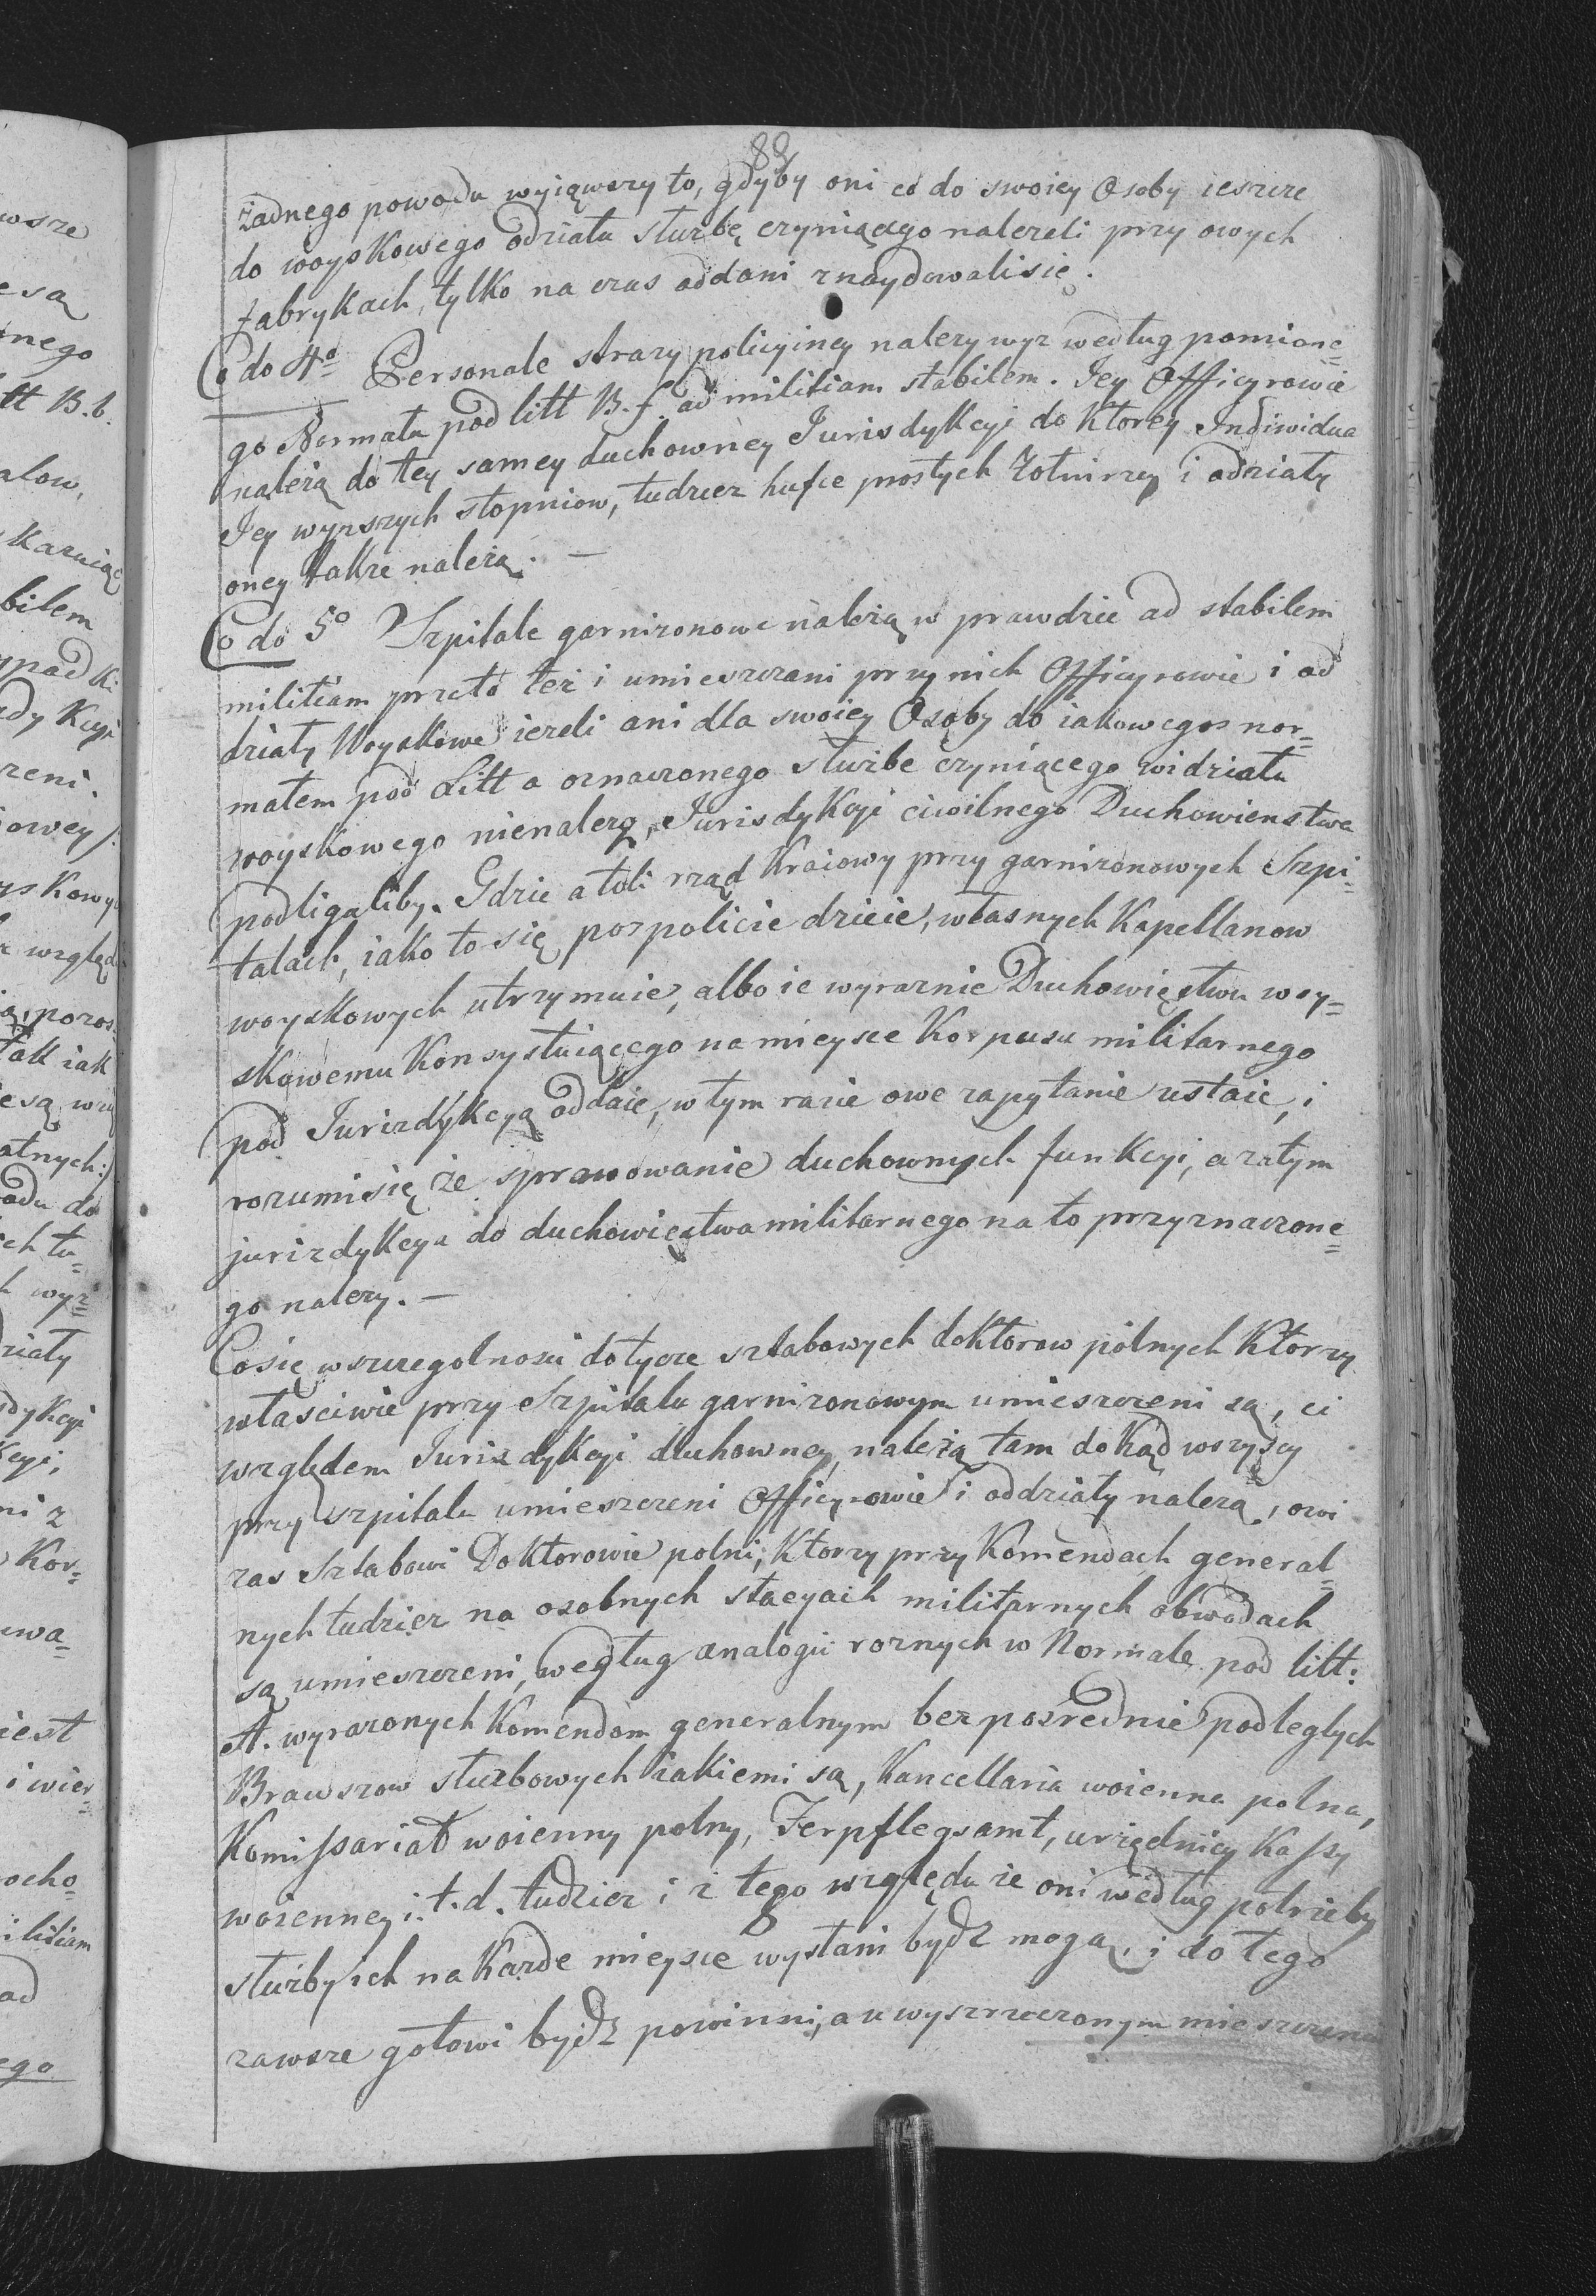 89
żadnego powodu wyiąwszy to, gdyby oni co do swoiey Osoby ieszcze
do woyskowego odziału służbę czyniącego należeli przy owych
fabrykach, tylko na czas oddani znaydowalisię.
Co do 4o Personale strazy policyiney nalezy wyz według pomione=
go Normału pod litt B. f. ad militiam stabilem. Jey Officyrowie
należą do tey samey duchowney Jurisdykcyi do ktorey Indiwidua
Jey wyzszych stopniow, tudziez hufce prostych Żołnirzy i odziały
oney takze należą. —
Co do 5o Szpitale garnizonowe należą w prawdzie ad stabilem
militiam przeto też i umieszczani przy nich Officyrowie i od
działy Woyskowe iezeli ani dla swoiey Osoby do iakowegos nor=
małem pod Litt a oznaczonego służbe czyniącego widziału
woyskowego nienalezą, Jurisdykcyi ciwilnego Duchowienstwa
podligaliby. Gdzie atoli rząd Kraiowy przy garnizonowych Szpi=
talach, iako to się pospolicie dzieie, własnych Kapellanow
woyskowych utrzymuie, albo ie wyraznie Duchowięstwu woy=
skowemu Konsystuiącego na mieysce Korpusu militarnego
pod Jurizdykcyą oddaie, w tym razie owe zapytanie ustaie, i
rozumisię że sprawowanie duchownych funkcyi, a zatym
jurizdykcya do duchowięstwa militarnego na to przyznaczone=
go nalezy. —
Cosię wszczegolnosci dotycze sztabowych doktorow pólnych Ktorzy
własciwie przy Szpitalu garnizonowym umieszczeni są, ci
względem Jurizdykcyi duhowney, należą tam dokąd wszyscy
przy szpitalu umieszczeni Officyrowie i oddziały nalezą, owi
zas Sztabowi Doktorowie polni, Ktorzy przy Komendach general=
nych tudziez na osobnych stacyach militarnych obwodach
są umieszczeni, według analogii roznych w Normale pod litt:
A. wyrazonych Komendom generalnym bezposrednie podległych
Branszow służbowych iakiemi są, Kancellaria woienna polna,
Komissariat woienny polny, Ferpflegsamt, urzędnicy Kassy
woienney i. t. d. tudziez i z tego względu ze oni według potrzeby
służby ich na Kazde mieysce wysłani bydz mogą, i do tego
zawsze gotowi bydz powinni, a u wyszrzeczonym